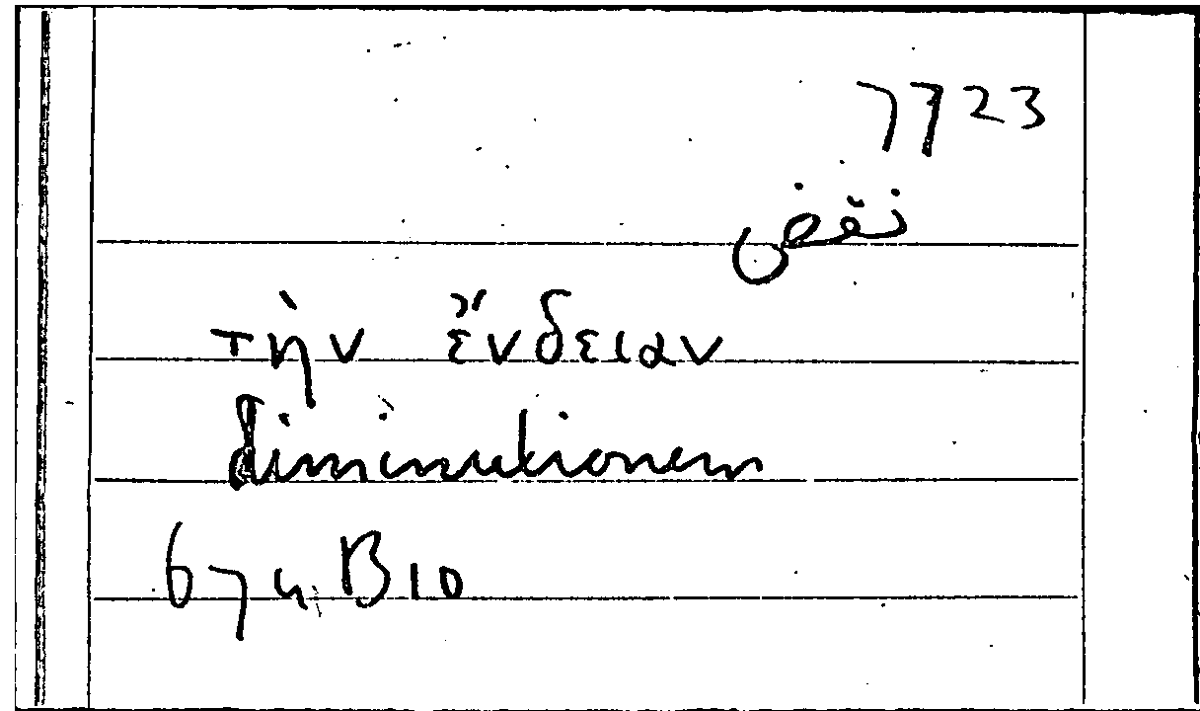 7723
نقض
τὴν ἔνδειαν
diminutionem
674 B10